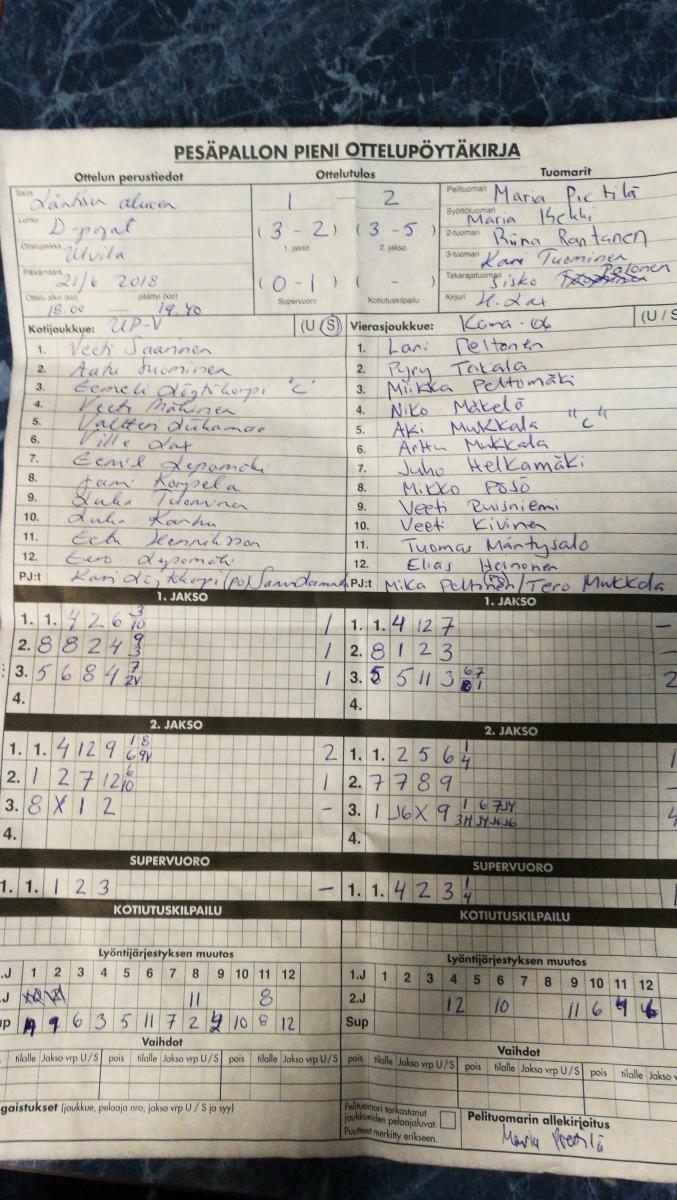 PESÄPALLON PIENI OTTELUPÖYTÄKIRJA
Ottelun perustiedot Ottelutulos Tuomarit
Sarja Läntisen alueen 1 — 2 Pelituomari Maria Pietilä
Lohko D-pojat ( 3 - 2 ) ( 3 - 5 ) Syöttötuomari Maria
Ottelupaikka Ulvila 1. jakso 2. jakso 2-tuomari Riina Rantanen
3-tuomari Kari Tuominen
Päivämäärä 21/6 2018 ( 0 - 1 ) ( - ) Takarajatuomari Sisko Palonen
Ottelu alkoi (klo) päättyi (klo) Supervuoro Kotiutuskilpailu Kirjuri H. Lax
18.00 — 19.40
Kotijoukkue: UP-V (U/S) Vierasjoukkue: Kana-06 (U/S
1. Veeti Saarinen 1. Lari Peltonen
2. Aatu Tuominen 2. Pyry Takala
3. Eemeli "C" 3. Miikka Peltomäki
4. Veeti 4. Niko Mäkelä
5. Valtteri 5. Aki Mukkala "C"
6. Ville Lax 6. Arttu Mukkala
7. Eemil Lepomäki 7. Juho Helkamäki
8. Jami Korpela 8. Mikko Pösö
9. Juha Tuominen 9. Veeti Ruisniemi
10. Juha Karhu 10. Veeti Kivinen
11. Eetu Henriksson 11. Tuomas Mäntysalo
12. Eero Lepomäki 12. Elias Heinonen
PJ:t Kari PJ:t Mika Peltonen / Tero Mukkala
1. JAKSO 1. JAKSO
1. 1. 4 2 6 3 10 1 1. 1. 4 12 7 –
2. 8 8 2 4 9 3 1 2. 8 1 2 3 –
3. 5 6 8 4 7 2V 1 3. 5 5 11 3 67 81 2
4. 4.
2. JAKSO 2. JAKSO
1. 1. 4 12 9 1 8 6 9V 2 1. 1. 2 5 6 1 4 1
2. 1 2 7 12 6 10 1 2. 7 7 8 9 –
3. 8 X 1 2 – 3. 1 J6 X 9 1 6 7 J4 3H J4 J6 J6 4
4. 4.
SUPERVUORO SUPERVUORO
1. 1. 1 2 3 – 1. 1. 4 2 3 1 4 1
KOTIUTUSKILPAILU KOTIUTUSKILPAILU
Lyöntijärjestyksen muutos Lyöntijärjestyksen muutos
.J 1 2 3 4 5 6 7 8 9 10 11 12 1.J 1 2 3 4 5 6 7 8 9 10 11 12
.J 11 8 2.J 12 10 11 6 9 4
up 1 9 6 3 5 11 7 2 4 10 8 12 Sup
Vaihdot Vaihdot
tilalle Jakso vrp U/S pois tilalle Jakso vrp U/S pois tilalle Jakso vrp U/S pois tilalle Jakso vrp U/S pois tilalle Jakso v
gaistukset (joukkue, pelaaja nro, jakso vrp U / S ja syy) Pelituomari tarkastanut joukkueiden pelaajaluvat. Puutteet merkitty erikseen. Pelituomarin allekirjoitus
Maria Pietilä